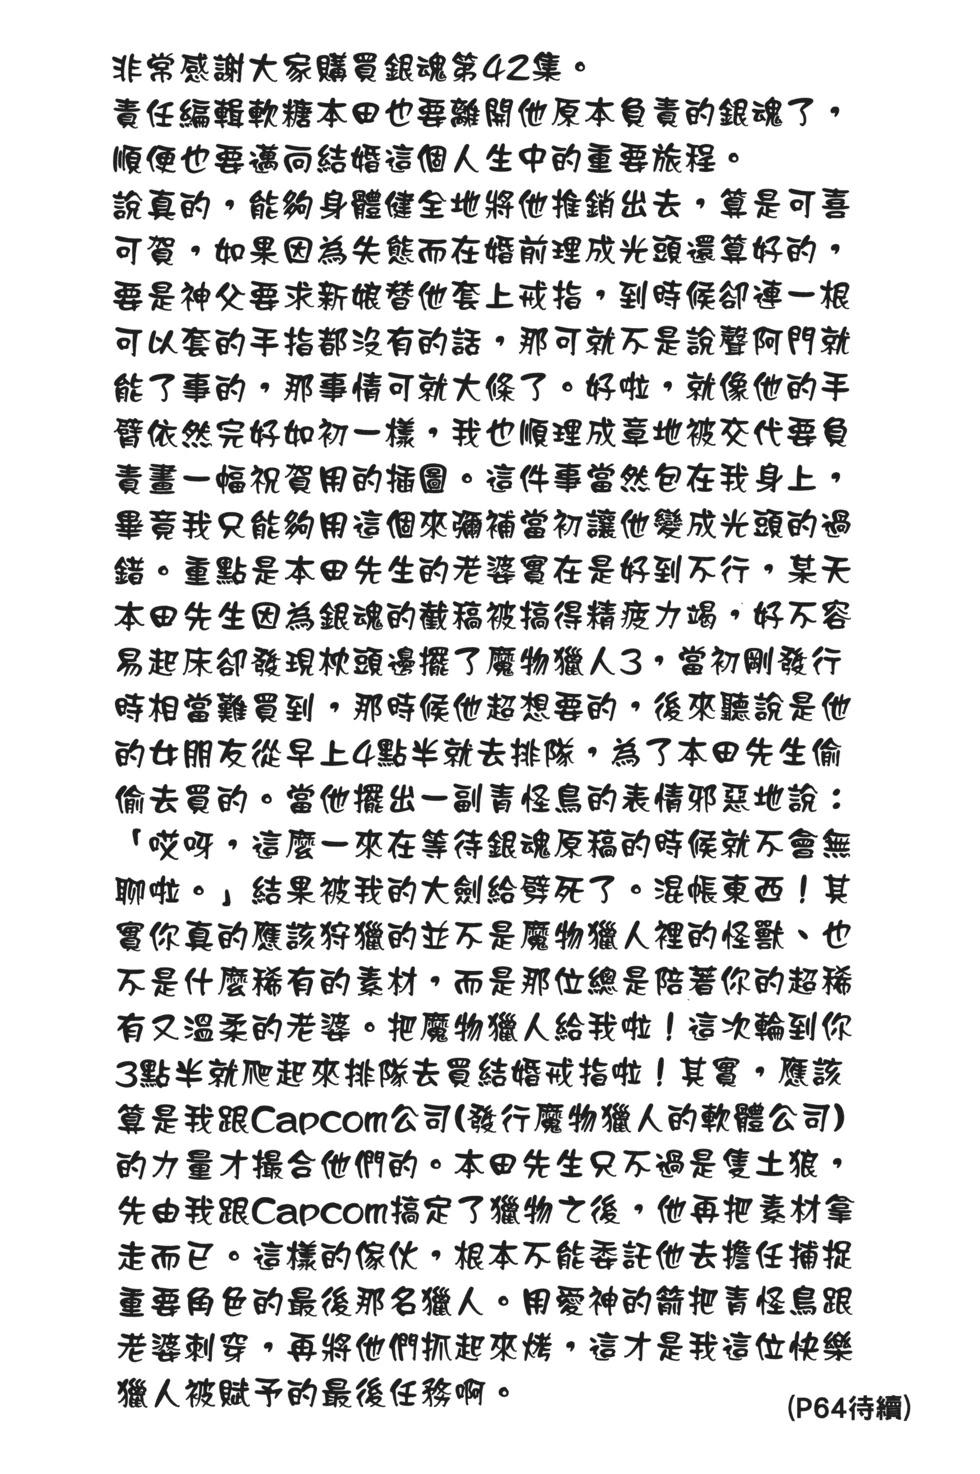 非常感謝大家購買銀魂第42集。
責任編輯軟糖本田也要離開他原本負責的銀魂了，
順便也要邁向結婚這個人生中的重要旅程。
說真的，能夠身體健全地將他推銷出去，算是可喜
可賀，如果因為失態而在婚前理成光頭還算好的，
要是神父要求新娘替他套上戒指，到時候卻連一根
可以套的手指都沒有的話，那可就不是說聲阿門就
能了事的，那事情可就大條了。好啦，就像他的手
臂依然完好如初一樣，我也順理成章地被交代要負
責畫一幅祝賀用的插圖。這件事當然包在我身上，
畢竟我只能夠用這個來彌補當初讓他變成光頭的過
錯。重點是本田先生的老婆實在是好到不行，某天
本田先生因為銀魂的截稿被搞得精疲力竭，好不容
易起床卻發現枕頭邊擺了魔物獵人3，當初剛發行
時相當難買到，那時候他超想要的，後來聽說是他
的女朋友從早上4點半就去排隊，為了本田先生偷
偷去買的。當他擺出一副青怪鳥的表情邪惡地說：
「哎呀，這麼一來在等待銀魂原稿的時候就不會無
聊啦。」結果被我的大劍給劈死了。混帳東西！其
實你真的應該狩獵的並不是魔物獵人裡的怪獸、也
不是什麼稀有的素材，而是那位總是陪著你的超稀
有又溫柔的老婆。把魔物獵人給我啦！這次輪到你
3點半就爬起來排隊去買結婚戒指啦！其實，應該
算是我跟Capcom公司(發行魔物獵人的軟體公司)
的力量才撮合他們的。本田先生只不過是隻土狼，
先由我跟Capcom搞定了獵物之後，他再把素材拿
走而已。這樣的傢伙，根本不能委託他去擔任捕捉
重要角色的最後那名獵人。用愛神的箭把青怪鳥跟
老婆刺穿，再將他們抓起來烤，這才是我這位快樂
獵人被賦予的最後任務啊。
(P64待續)